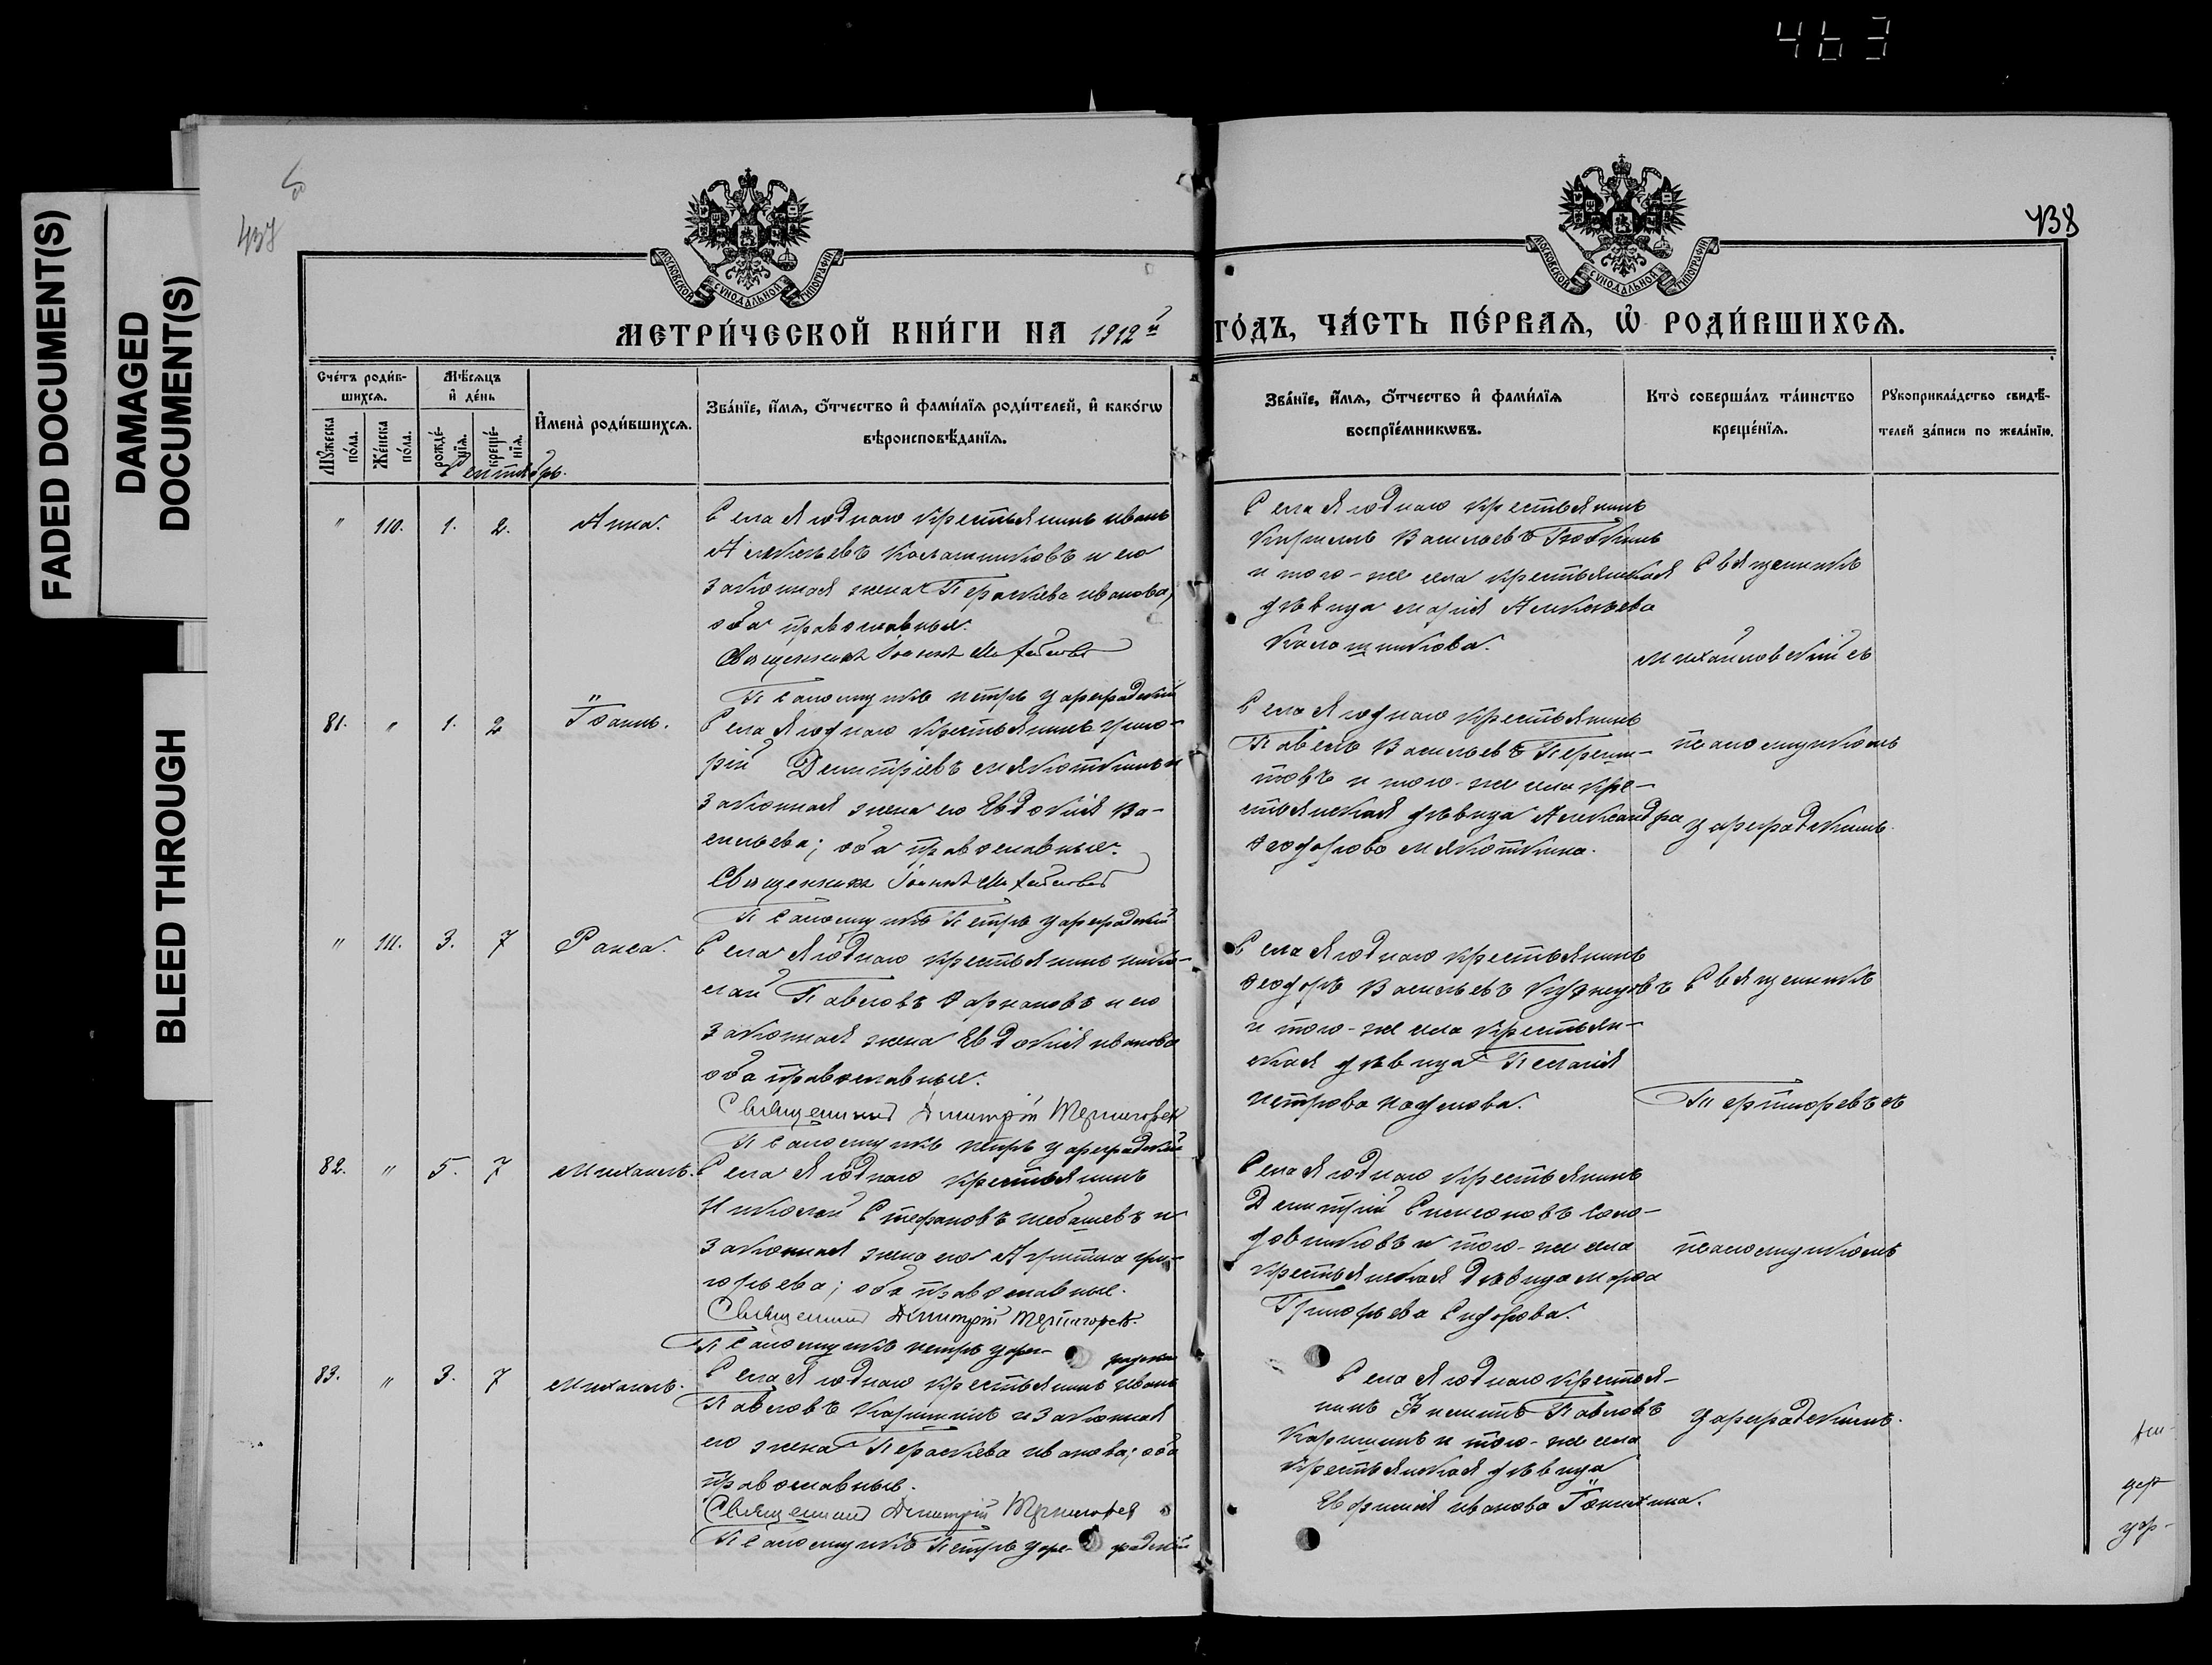 463
FADED DOCUMENT(S)
DAMAGED
DOCUMENT(S)
BLEED THROUGH
437
438
МОСКОВСКОЙ СУНОДАЛЬНОЙ ТИПОГРАФІИ
МОСКОВСКОЙ СУНОДАЛЬНОЙ ТИПОГРАФІИ
МЕТРИ́ЧЕСКОЙ КНИ́ГИ НА 1912й
ГО́ДЪ, ЧА́СТЬ ПЕ́РВАѦ, Ѡ҆ РОДИ́ВШИХСѦ.
Сче́тъ роди́в-
шихсѧ.
Мѹ́жеска
по́ла.
Же́нска
по́ла.
Мѣ́сѧцъ
и҆ де́нь
рожде́-
нїѧ.
креще́-
нїѧ.
И҆мена̀ роди́вшихсѧ.
Зва́нїе, и҆́мѧ, ѻ҆́тчество и҆ фами́лїѧ роди́телей, и҆ како́гѡ
вѣроисповѣ́данїѧ.
Зва́нїе, и҆́мѧ, ѻ҆́тчество и҆ фами́лїѧ
воспрїе́мникѡвъ.
Кто̀ соверша́лъ та́инство
креще́нїѧ.
Рѹкоприкла́дство свидѣ́-
телей за́писи по жела́нїю.
Сентябрь.
" 110. 1. 2. Анна.
Села Ягоднаго крестьянинъ Иванъ
Алексѣевъ Калашниковъ и его
законная жена Параскева Иванова,
оба православные.
Священникъ Іоаннъ
Псаломщикъ Петръ Цареградскій
Села Ягоднаго крестьянинъ
Кириллъ Васильевъ
и того-же села крестьянская
дѣвица Марія Алексѣева
Калашникова.
Священникъ
Михайловскій съ
81. " 1. 2 Іоаннъ.
Села Ягоднаго крестьянинъ Григо-
рій Димитріевъ Мякоткинъ и
законная жена его Евдокія Ва-
сильева; оба православные.
Священникъ Іоаннъ
Псаломщикъ Петръ Цареградскій
Села Ягоднаго крестьянинъ
Павелъ Васильевъ
и того-же села кре-
стьянская дѣвица Александра
Ѳеодорова Мякоткина.
псаломщикомъ
Цареградскимъ.
" 111. 3. 7 Раиса.
Села Ягоднаго крестьянинъ Нико-
лай Павловъ и его
законная жена Евдокія Иванова
оба православные.
Священникъ Димитрій
Псаломщикъ Петръ Цареградскій
Села Ягоднаго крестьянинъ
Ѳеодоръ Васильевъ Кузнецовъ
и того-же села крестьян-
ская дѣвица Пелагія
Петрова
Священникъ
съ
82. " 5. 7 Михаилъ.
Села Ягоднаго крестьянинъ
Николай Стефановъ и
законная жена его Агриппина Гри-
горьева; оба православные.
Священникъ Димитрій
Псаломщикъ Петръ Царе-градскій
Села Ягоднаго крестьянинъ
Димитрій Симеоновъ Соло-
довниковъ и того-же села
крестьянская дѣвица Марѳа
Григорьева Сидорова.
псаломщикомъ
83. " 3. 7 Михаилъ.
Села Ягоднаго крестьянинъ Иванъ
Павловъ Каришинъ и законная
его жена Параскева Иванова; оба
православные.
Священникъ Димитрій
Псаломщикъ Петръ Царе-градскій
Села Ягоднаго крестья-
нинъ Павловъ
Каришинъ и того-же села
крестьянская дѣвица
Евфимія Иванова
Цареградскимъ.